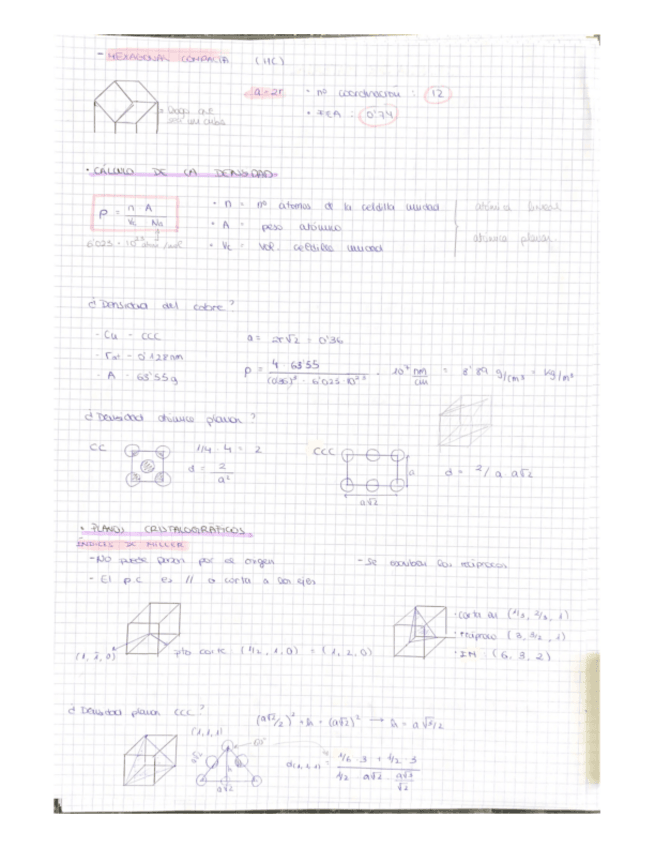 - HEXAGONAL COMPACTA (HC)
a = 2r · nº coordinación : 12
· FEA : 0'74
· CÁLCULO DE LA DENSIDAD.
ρ = n A / Vc Na
· n = nº átomos de la celdilla unidad
· A = peso atómico
· Vc = vol. celdilla unidad
atómica lineal
atómica planar
6'023 · 10²³ /mol
¿ Densidad del cobre ?
- Cu - CCC
- rat - 0'128 nm
- A - 63'55g
a = 2r√2 = 0'36
ρ = 4 · 63'55 / (0'36)³ · 6'023 · 10²³ · 10⁷ nm/cm = 8'89 g/cm³ = kg/m³
¿ Densidad atómica planar ?
CC 1/4 · 4 = 2
d = 2 / a²
CCC
a
a√2
d = 2/a · a√2
· PLANOS CRISTALOGRÁFICOS.
ÍNDICES DE MILLER
- No puede pasar por el origen
- Se escriben los recíprocos
- El p.c. es // o corta a los ejes
pto corte (1/2, 1, 0) = (1, 2, 0)
· Corta en (1/3, 2/3, 1)
· Recíproco (3, 3/2, 1)
· IM (6, 3, 2)
¿ Densidad planar CCC ?
(1, 1, 1)
a√2
h
a√2